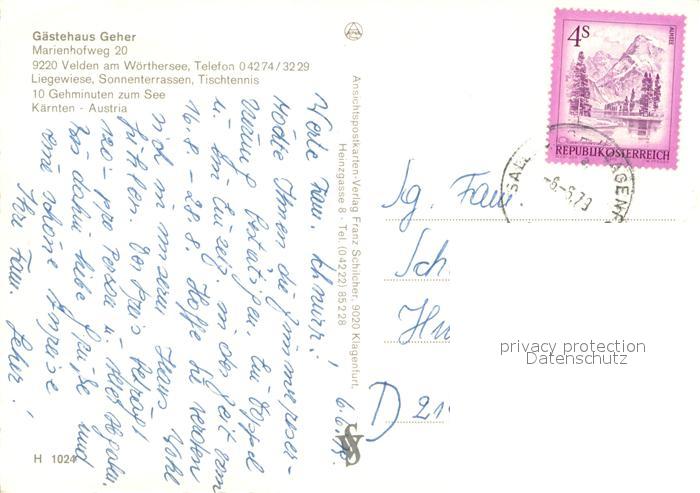 Gästehaus Geher
Marienhofweg 20
9220 Velden am Wörthersee, Telefon 04274/3229
Liegewiese, Sonnenterrassen, Tischtennis
10 Gehminuten zum See
Kärnten - Austria
Werte Fam.
Möchte Ihnen die Zimmerreser-
vierung bestätigen. Ein Doppel
u. ein Einzelz. in der Zeit vom
16.8 - 28.8. Hoffe Sie werden
sich in unserem Haus wohl
fühlen. Der Preis beträgt
120.- pro Person u. aller Abgaben.
Bis dahin liebe Grüße und
eine schöne Anreise
Ihre Fam. Geher!
H 1024
Ansichtspostkarten-Verlag Franz Schilcher, 9020 Klagenfurt,
Heinzgasse 8 · Tel. (04222) 85228
4S
ALMSEE
REPUBLIK ÖSTERREICH
-6.-6.79
Sg. Fam.
Sch
Hu
D 21
privacy protection
Datenschutz